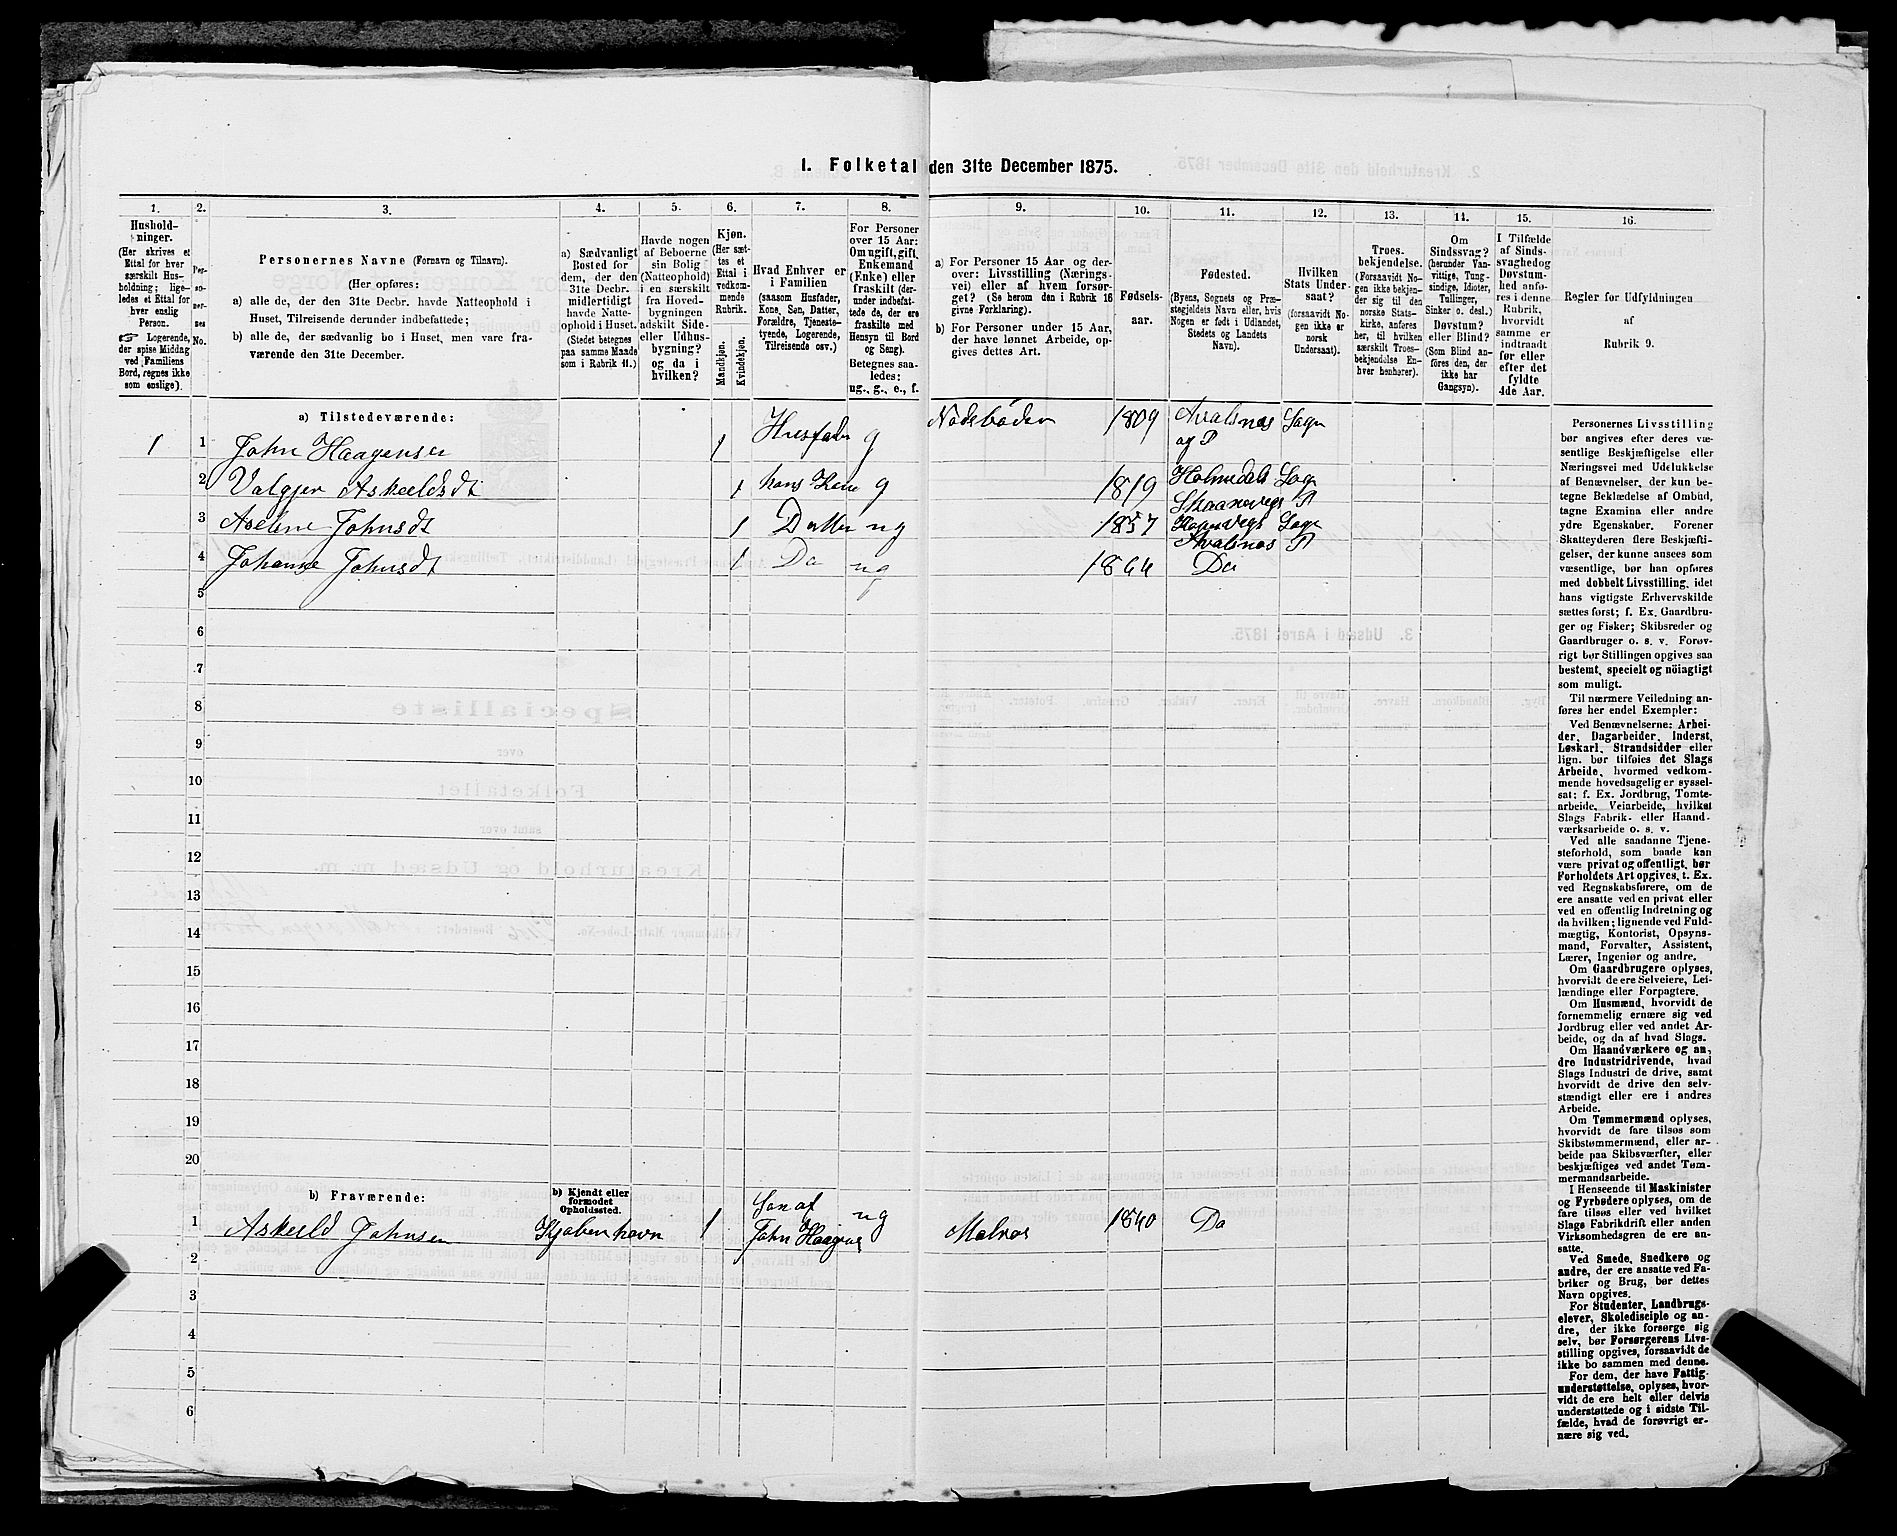 1. Folketal den 31te December 1875.
1.
2.
3.
4.
5.
6.
7.
8.
9.
10.
11.
12.
13.
14.
15.
16.
Hushold-
ninger.
(Her skrives et
Ettal for hver
særskilt Hus-
holdning; lige-
ledes et Ettal for
hver enslig
Person.
☞ Logerende,
der spise Middag
ved Familiens
Bord, regnes ikke
som enslige).
Per-
so-
ner-
nes
No.
Personernes Navne (Fornavn og Tilnavn).
(Her opføres:
a) alle de, der den 31te Decbr. havde Natteophold i
Huset, Tilreisende derunder indbefattede;
b) alle de, der sædvanlig bo i Huset, men vare fra-
værende den 31te December.
a) Sædvanligt
Bosted for
dem, der den
31te Decbr.
midlertidigt
havde Natte-
ophold i Huset.
(Stedet betegnes
paa samme Maade
som i Rubrik 11.)
Havde nogen
af Beboerne
sin Bolig
(Natteophold)
i en særskilt
fra Hoved-
bygningen
adskilt Side-
eller Udhus-
bygning?
og da i
hvilken?
Kjøn.
(Her sæt-
tes et
Ettal i
vedkom-
mende
Rubrik.
Mandkjøn.
Kvindekjøn.
Hvad Enhver er
i Familien
(saasom Husfader,
Kone, Søn, Datter,
Forældre, Tjeneste-
tyende, Logerende,
Tilreisende osv.)
For Personer
over 15 Aar:
Om ugift, gift,
Enkemand
(Enke) eller
fraskilt (der-
under indbefat-
tede de, der ere
fraskilte med
Hensyn til Bord
og Seng).
Betegnes saa-
ledes:
ug., g., e., f.
a) For Personer 15 Aar og der-
over: Livsstilling (Nærings-
vei) eller af hvem forsør-
get? (Se herom den i Rubrik 16
givne Forklaring).
b) For Personer under 15 Aar,
der have lønnet Arbeide, op-
gives dettes Art.
Fødsels-
aar.
Fødested.
(Byens, Sognets og Præ-
stegjeldets Navn, eller, hvis
Nogen er født i Udlandet,
Stedets og Landets
Navn).
Hvilken
Stats Under-
saat?
(forsaavidt No-
gen ikke er
norsk
Undersaat).
Troes-
bekjendelse.
(Forsaavidt No-
gen ikke bekjen-
der sig til den
norske Stats-
kirke, anføres
her, til hvilken
særskilt Troes-
bekjendelse En-
hver henhører).
Om
Sindssvag?
(herunder Van-
vittige, Tung-
sindige, Idioter,
Tullinger,
Sinker o. desl.)
Døvstum?
eller Blind?
(Som Blind an-
føres den, der
ikke har
Gangsyn).
I Tilfælde
af Sinds-
svaghed og
Døvstum-
hed anfø-
res i denne
Rubrik,
hvorvidt
samme er
indtraadt
før eller
efter det
fyldte
4de Aar.
Regler for Udfyldningen
af
Rubrik 9.
a) Tilstedeværende:
1 1 John Haagensen 1 Husfader g 1809 Avalsnæs Sogn
og P
2 Valgjer Askeeldsdt 1 hans Kone g 1819 Holmedals Sogn
Skaanevigs P
3 Aseline Johnsdt 1 Datter ug 1857 Sogn
Avalsnæs P
4 Johanne Johnsdt 1 Do ug 1864 Do
5
6
7
8
9
10
11
12
13
14
15
16
17
18
19
20
b) Fraværende:
b) Kjendt eller
formodet
Opholdssted.
1 Askeeld Johnsen Kjøbenhavn 1 Søn af
John Haagens ug Matros 1840 Do
2
3
4
5
6
Personernes Livsstilling
bør angives efter deres væ-
sentlige Beskjæftigelse eller
Næringsvei med Udelukkelse
af Benævnelser, der kun be-
tegne Beklædelse af Ombud,
tagne Examina eller andre
ydre Egenskaber. Forener
Skatteyderen flere Beskjæfti-
gelser, der kunne ansees som
væsentlige, bør han opføres
med dobbelt Livsstilling, idet
hans vigtigste Erhvervskilde
sættes først; f. Ex. Gaardbru-
ger og Fisker; Skibsreder og
Gaardbruger o. s. v. Forøv-
rigt bør Stillingen opgives saa
bestemt, specielt og nöiagtigt
som muligt.
Til nærmere Veiledning an-
føres her endel Exempler:
Ved Benævnelserne: Arbei-
der, Dagarbeider, Inderst,
Løskarl, Strandsidder eller
lign. bør tilføies det Slags
Arbeide, hvormed vedkom-
mende hovedsagelig er syssel-
sat; f. Ex. Jordbrug, Tomte-
arbeide, Veiarbeide, hvilket
Slags Fabrik- eller Haand-
værksarbeide o. s. v.
Ved alle saadanne Tjene-
steforhold, som baade kan
være privat og offentligt, bør
Forholdets Art opgives, t. Ex.
ved Regnskabsførere, om de
ere ansatte ved en privat eller
ved en offentlig Indretning og
da hvilken; lignende ved Fuld-
mægtig, Kontorist, Opsyns-
mand, Forvalter, Assistent,
Lærer, Ingeniør og andre.
Om Gaardbrugere oplyses,
hvorvidt de ere Selveiere, Lei-
lændinge eller Forpagtere.
Om Husmænd, hvorvidt de
fornemmelig ernære sig ved
Jordbrug eller ved andet Ar-
beide, og da af hvad Slags.
Om Haandværkere og an-
dre Industridrivende, hvad
Slags Industri de drive, samt
hvorvidt de drive den selv-
stændigt eller ere i andres
Arbeide.
Om Tømmermænd oplyses,
hvorvidt de fare tilsøs som
Skibstømmermænd, eller ar-
beide paa Skibsværfter, eller
beskjæftiges ved andet Tøm-
mermandsarbeide.
I Henseende til Maskinister
og Fyrbødere oplyses, om de
fare tilsøs eller ved hvilket
Slags Fabrikdrift eller anden
Virksomhedsgren de ere an-
satte.
Ved Smede, Snedkere og
andre, der ere ansatte ved Fa-
briker og Brug, bør dettes
Navn opgives.
For Studenter, Landbrugs-
elever, Skoledisciple og an-
dre, der ikke forsørge sig
selv, bør Forsørgerens Livs-
stilling opgives, forsaavidt de
ikke bo sammen med denne.
For dem, der have Fattig-
understøttelse, oplyses, hvor-
vidt de ere helt eller delvis
understøttede og i sidste Til-
fælde, hvad de forøvrigt er-
nære sig ved.